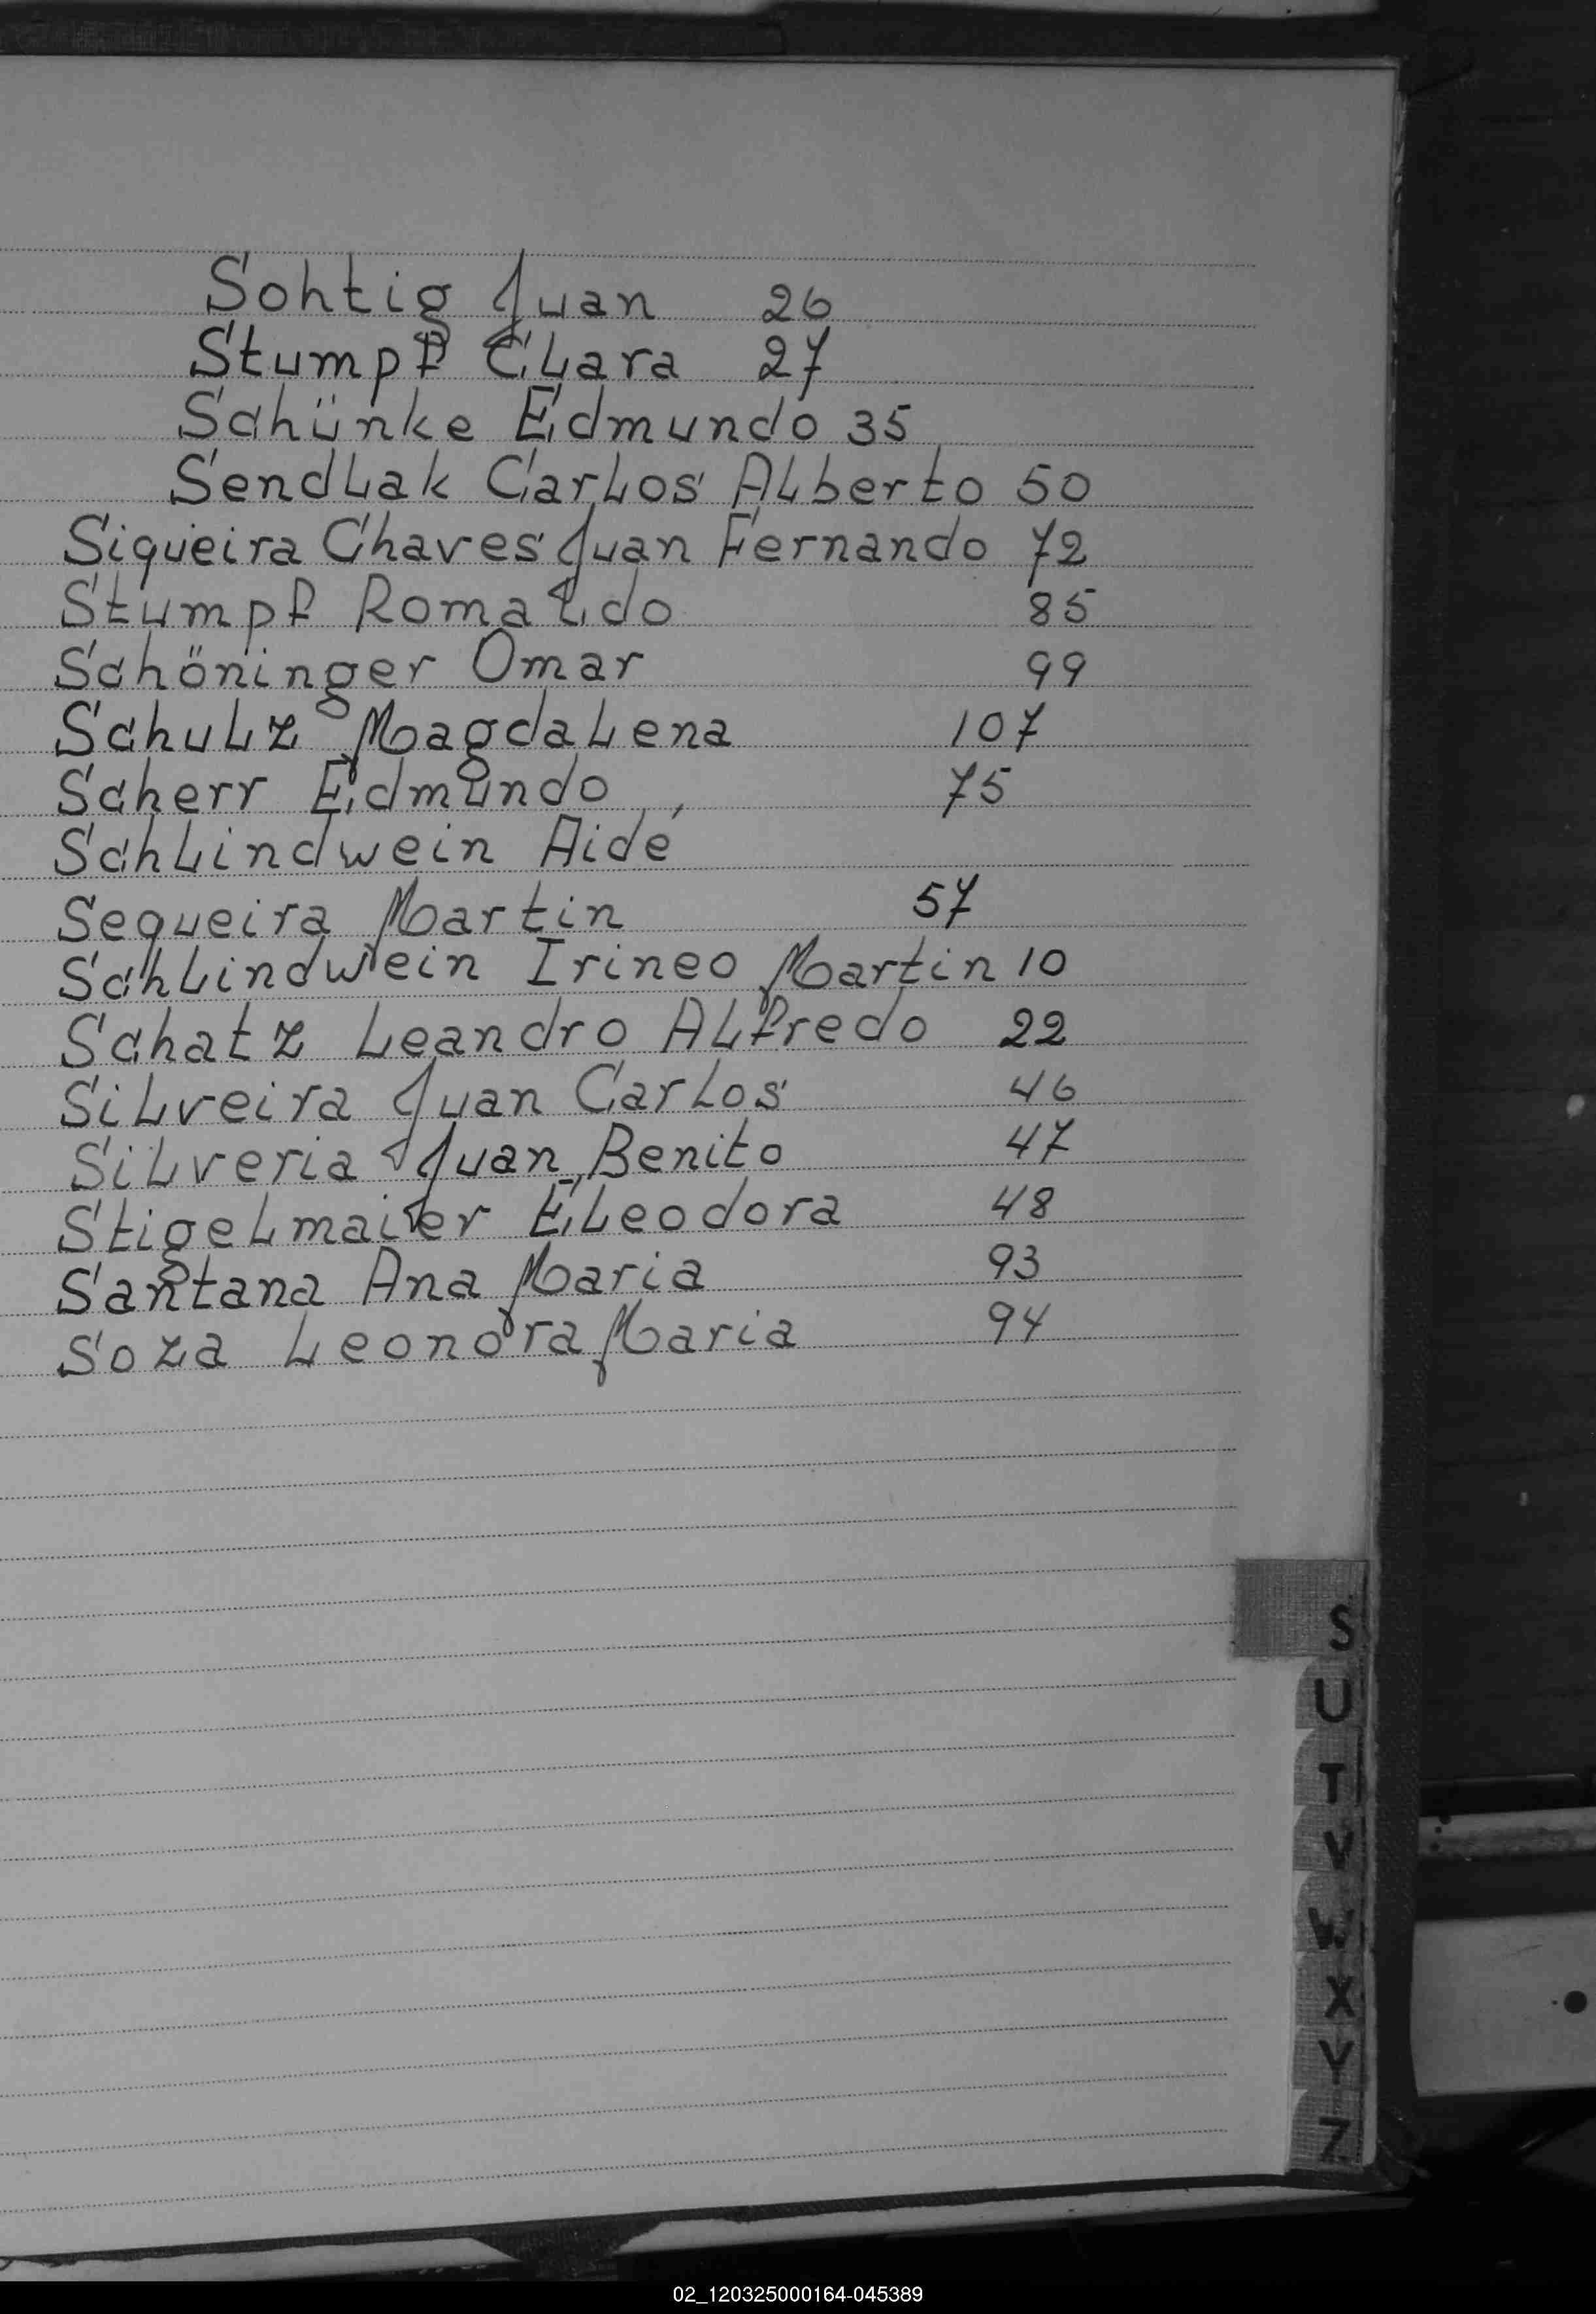 Sohtig Juan 26
Stumpf Clara 27
Schünke Edmundo 35
Sendlak Carlos Alberto 50
Siqueira Chaves Juan Fernando 72
Stumpf Romaldo 85
Schöninger Omar 99
Schulz Magdalena 107
Scherr Edmundo 75
Schlindwein Aidé
Sequeira Martin 57
Schlindwein Irineo Martin 10
Schatz Leandro Alfredo 22
Silveira Juan Carlos 46
Silveria Juan Benito 47
Stigelmaier Eleodora 48
Santana Ana Maria 93
Soza Leonora Maria 94
S
U
T
V
W
X
Y
Z
02_120325000164-045389